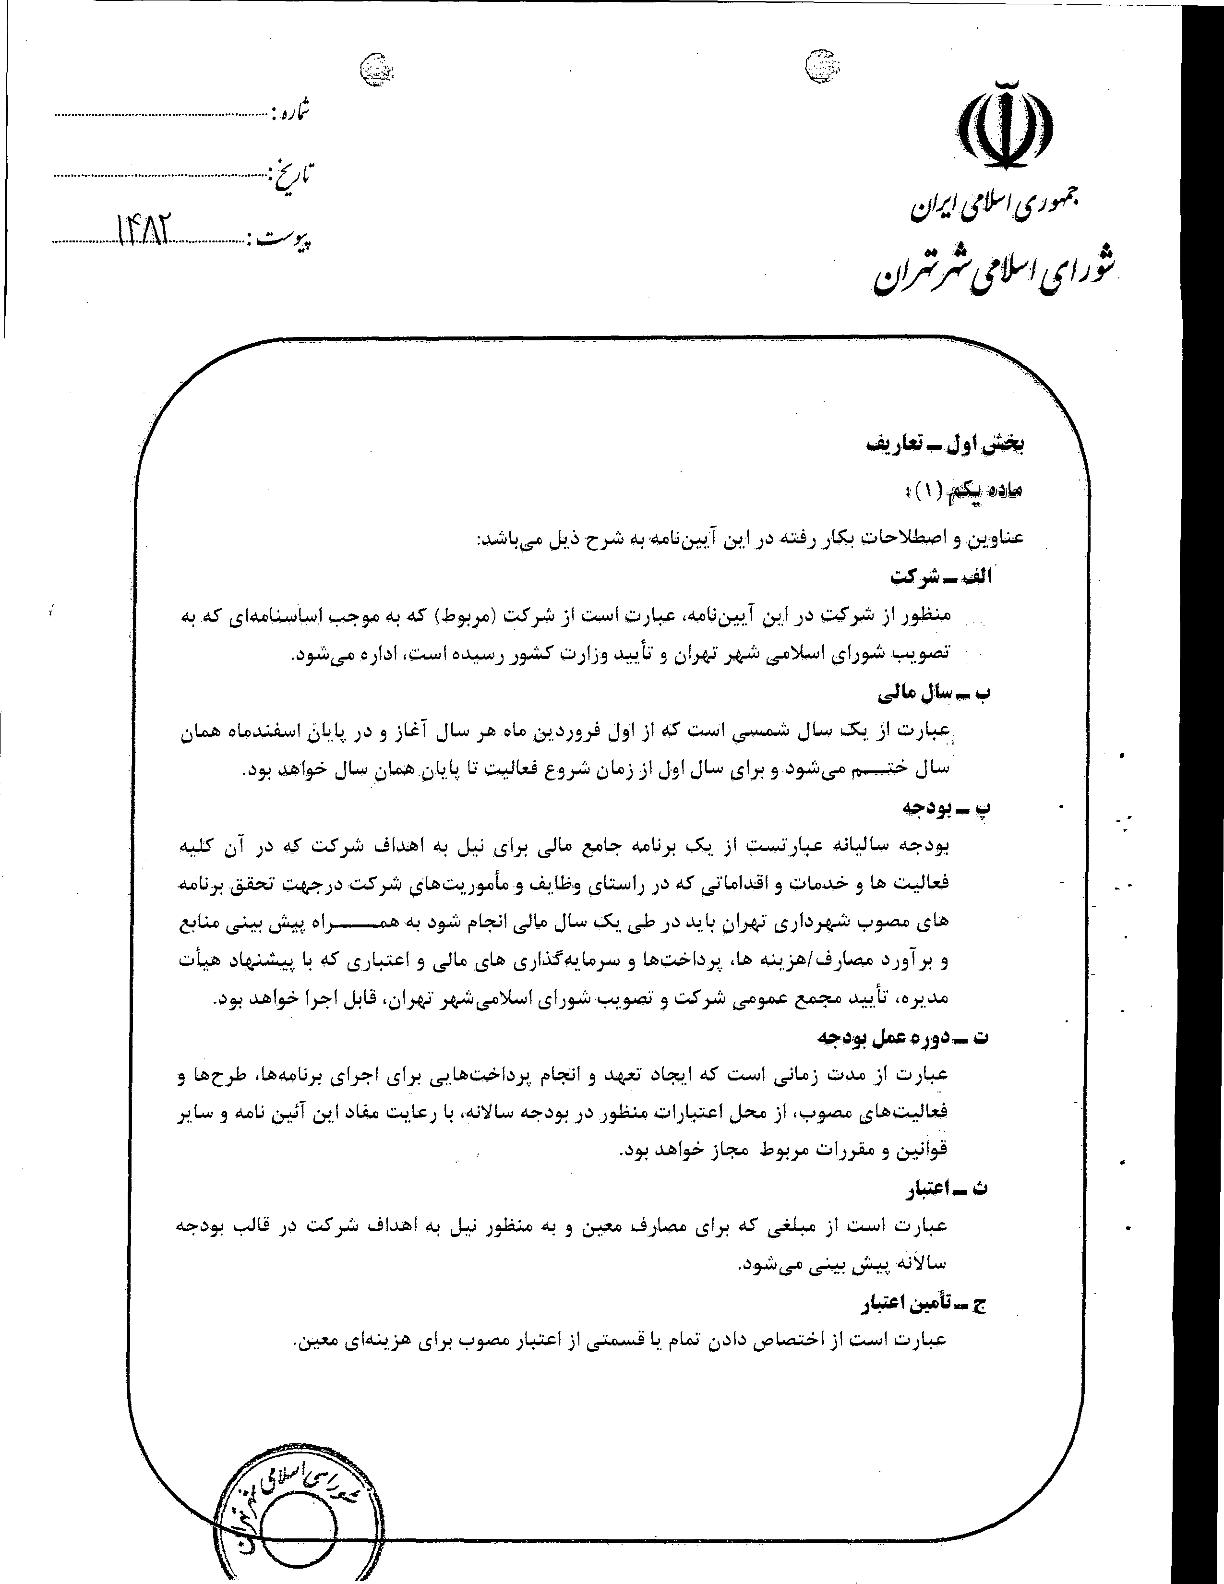 جمهوری اسلامی ایران
شورای اسلامی شهر تهران
شماره :
تاریخ :
پیوست : ۱۴۸۲
بخش اول ـ تعاریف
ماده یکم (۱):
عناوین و اصطلاحات بکار رفته در این آیین‌نامه به شرح ذیل می‌باشد:
الف ـ شرکت
منظور از شرکت در این آیین‌نامه، عبارت است از شرکت (مربوط) که به موجب اساسنامه‌ای که به
تصویب شورای اسلامی شهر تهران و تأیید وزارت کشور رسیده است، اداره می‌شود.
ب ـ سال مالی
عبارت از یک سال شمسی است که از اول فروردین ماه هر سال آغاز و در پایان اسفندماه همان
سال ختـــم می‌شود و برای سال اول از زمان شروع فعالیت تا پایان همان سال خواهد بود.
پ ـ بودجه
بودجه سالیانه عبارتست از یک برنامه جامع مالی برای نیل به اهداف شرکت که در آن کلیه
فعالیت ها و خدمات و اقداماتی که در راستای وظایف و مأموریت‌های شرکت درجهت تحقق برنامه
های مصوب شهرداری تهران باید در طی یک سال مالی انجام شود به همـــــراه پیش بینی منابع
و برآورد مصارف/هزینه ها، پرداخت‌ها و سرمایه‌گذاری های مالی و اعتباری که با پیشنهاد هیأت
مدیره، تأیید مجمع عمومی شرکت و تصویب شورای اسلامی‌شهر تهران، قابل اجرا خواهد بود.
ت ـ دوره عمل بودجه
عبارت از مدت زمانی است که ایجاد تعهد و انجام پرداخت‌هایی برای اجرای برنامه‌ها، طرح‌ها و
فعالیت‌های مصوب، از محل اعتبارات منظور در بودجه سالانه، با رعایت مفاد این آئین نامه و سایر
قوانین و مقررات مربوط مجاز خواهد بود.
ث ـ اعتبار
عبارت است از مبلغی که برای مصارف معین و به منظور نیل به اهداف شرکت در قالب بودجه
سالانه پیش بینی می‌شود.
ج ـ تأمین اعتبار
عبارت است از اختصاص دادن تمام یا قسمتی از اعتبار مصوب برای هزینه‌ای معین.
شورای اسلامی شهر تهران